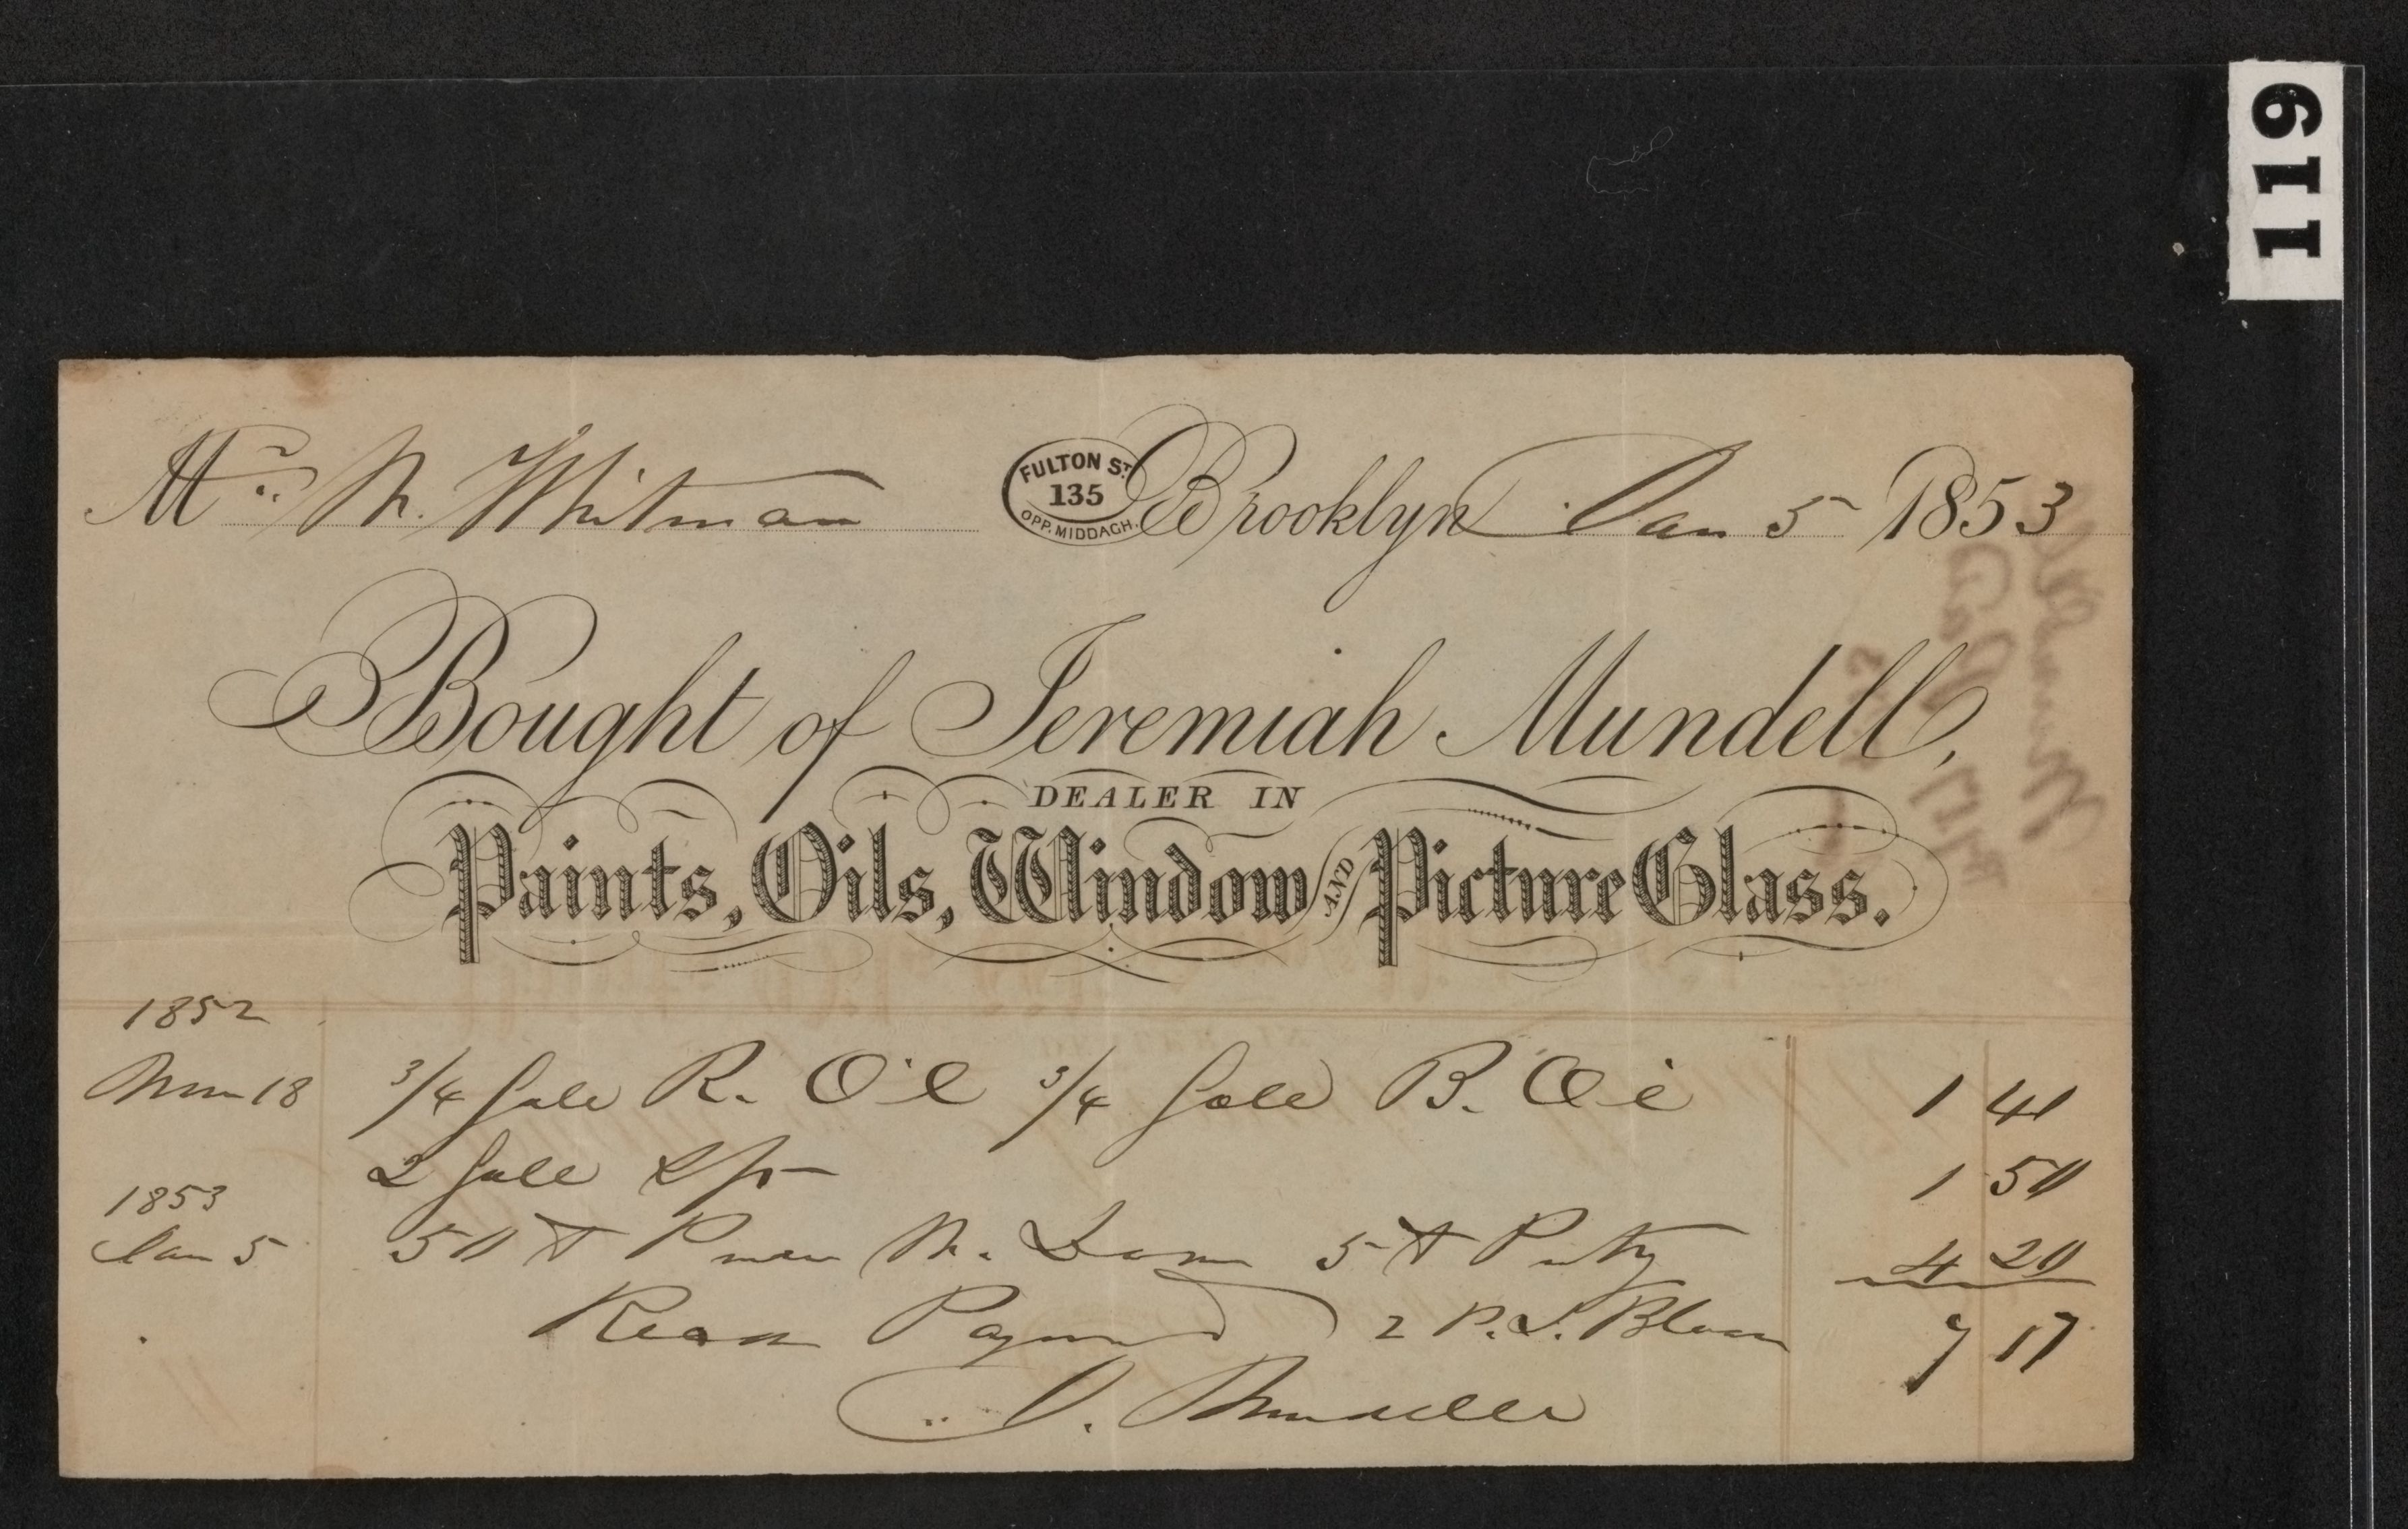 119
Mr. W. Whitman
FULTON ST.
135
OPP. MIDDAGH.
Brooklyn Jan 5 1853
Bought of Jeremiah Mundell,
DEALER IN
Paints, Oils, Window AND Picture Glass.
1852
Nov 18 3/4 Gall R. Oil 3/4 Gall B. Oil 1 41
2 Gall 1 50
1853
Jan 5 50 W. 5 Putty 4 20
Payment 2 P. 7 17
J. Mundell